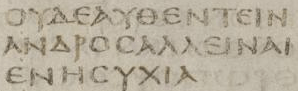 ΟΥΔΕΑΥΘΕΝΤΕΙΝ
ΑΝΔΡΟϹΑΛΛΕΙΝΑΙ
ΕΝΗϹΥΧΙΑ